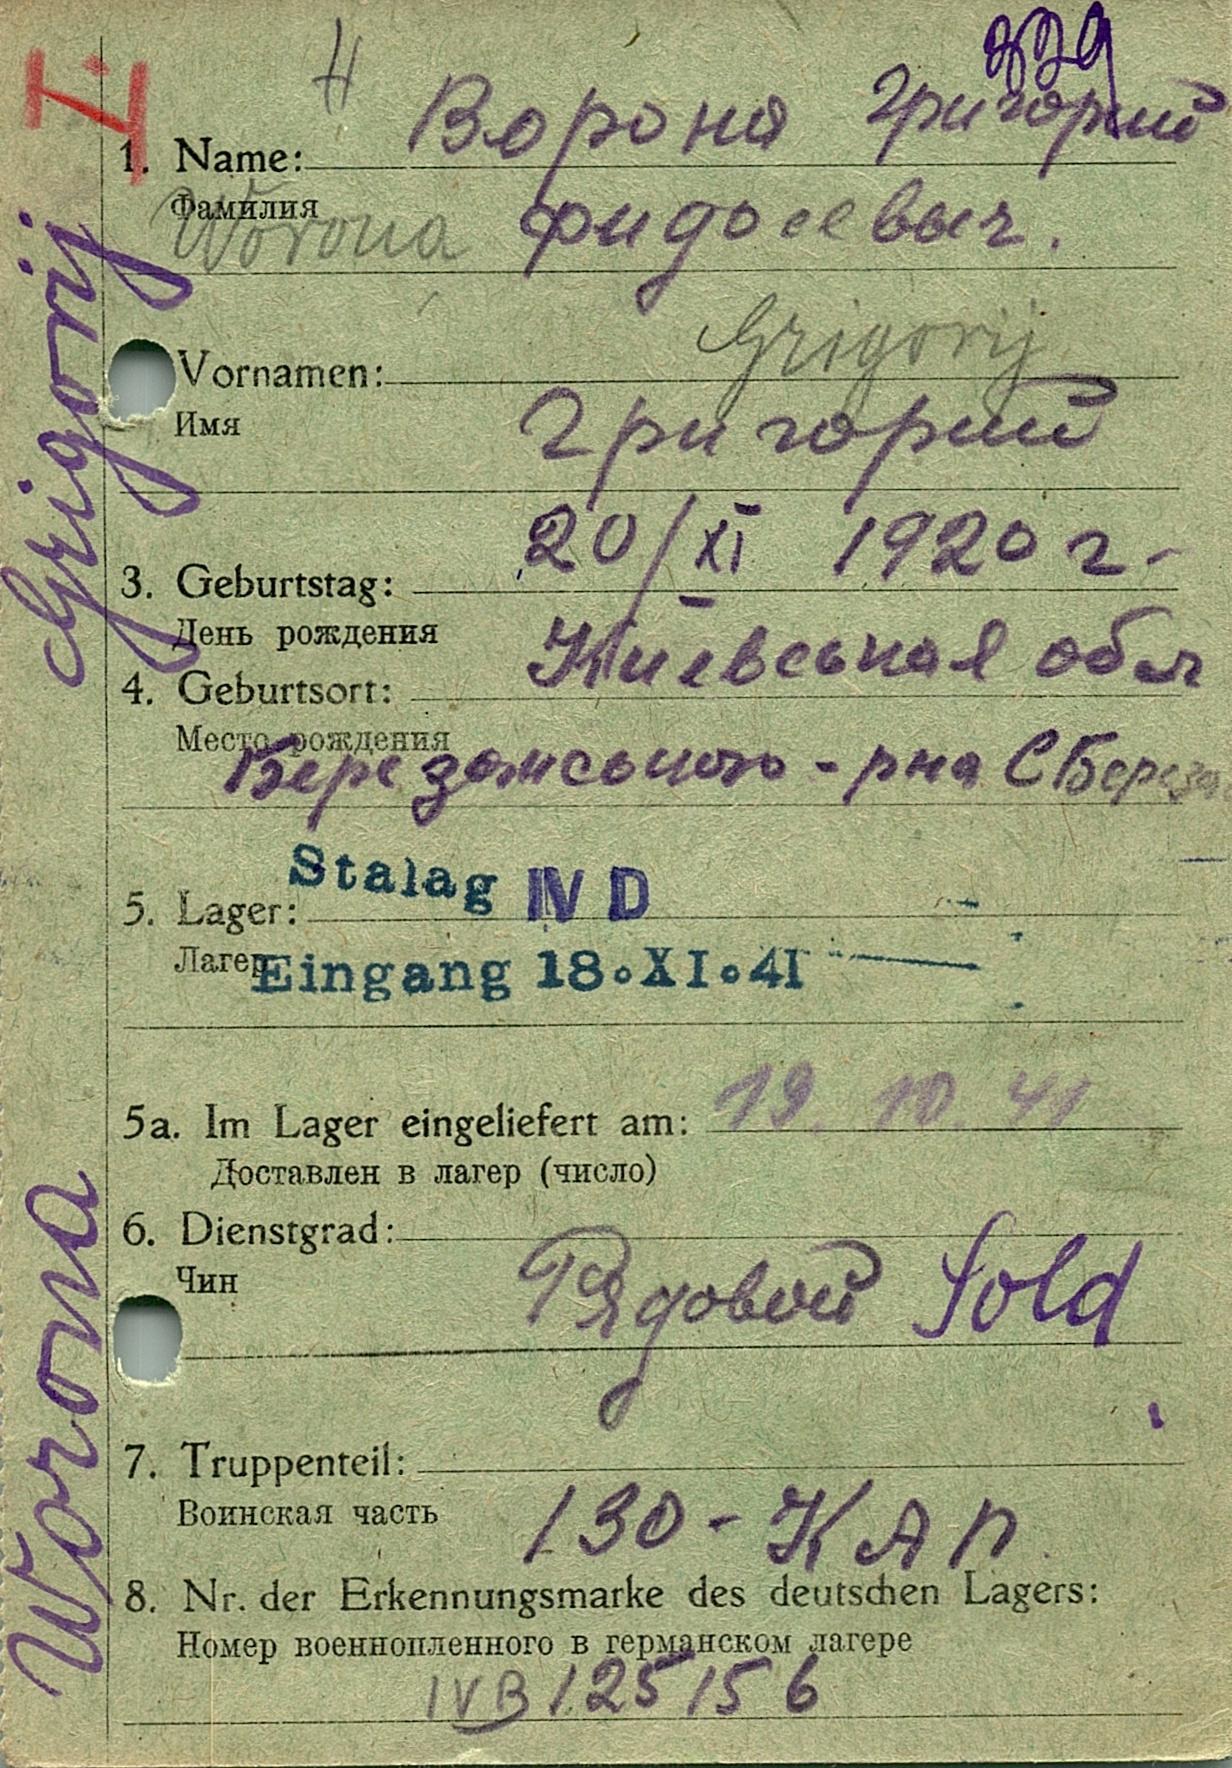 H
1. Name: Ворона Григорий
Фамилия
Worona фидосевыч.
Vornamen: Grigorij
Имя
Григорий
3. Geburtstag: 20/XI 1920 г.
День рождения
4. Geburtsort: Киевськая обл
Место рождения
Березамського - рна С Береза
5. Lager: Stalag IV D
Лагер
Eingang 18.XI.41
5a. Im Lager eingeliefert am: 19.10.41
Доставлен в лагер (число)
6. Dienstgrad:
Чин
Рядовой Sold
7. Truppenteil:
Воинская часть
130 - КАП
8. Nr. der Erkennungsmarke des deutschen Lagers:
Номер военнопленного в германском лагере
IVB 125156
Worona Grigorij